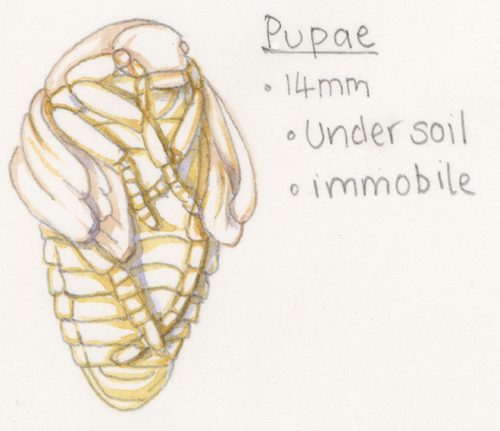 Pupae
• 14mm
• Under soil
• immobile